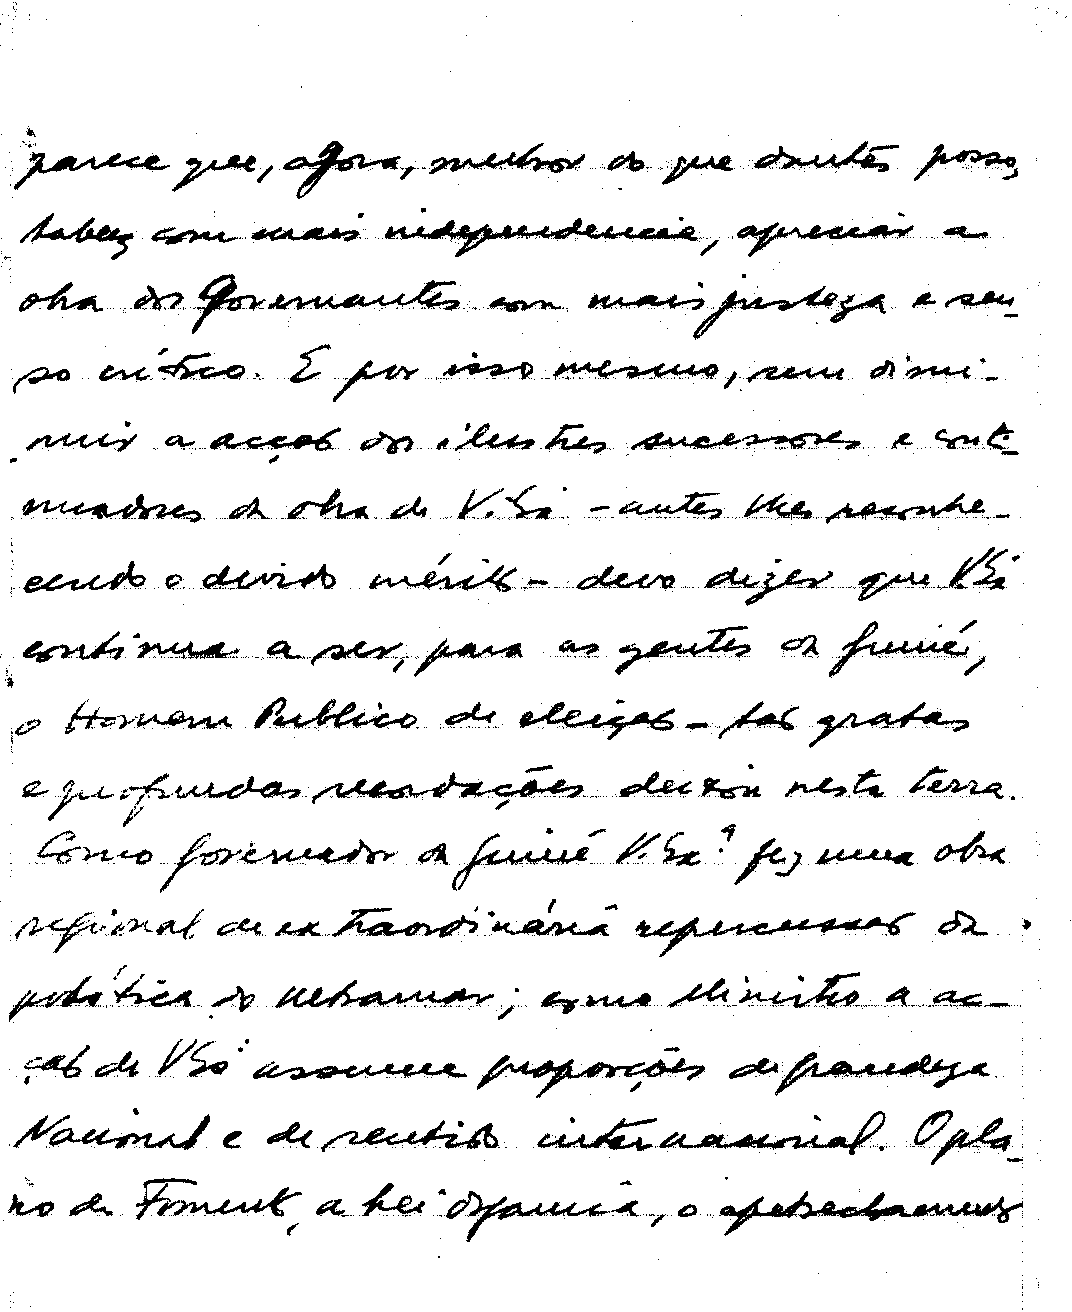 parece que, agora, melhor do que dantes posso,
talvez com mais independencia, apreciar a
obra dos Governantes com mais justeza e sen-
so crítico. E por isso mesmo, sem dimi-
nuir a acção dos ilustres sucessores e conti-
nuadores da obra de V. Exª - antes lhes reconhe-
cendo o devido mérito - devo dizer que V Exª
continua a ser, para as gentes da Guiné,
o Homem Publico de eleição - tão gratas
e profundas recordações deixou nesta terra.
Como Governador da Guiné V. Exª fez uma obra
regional de extraordinária repercussão na
politica do Ultramar; como Ministro a ac-
ção de V Exª assume proporções de grandeza
Nacional e de sentido internacional. O pla-
no de Fomento, a Lei organica, o apetrechamento